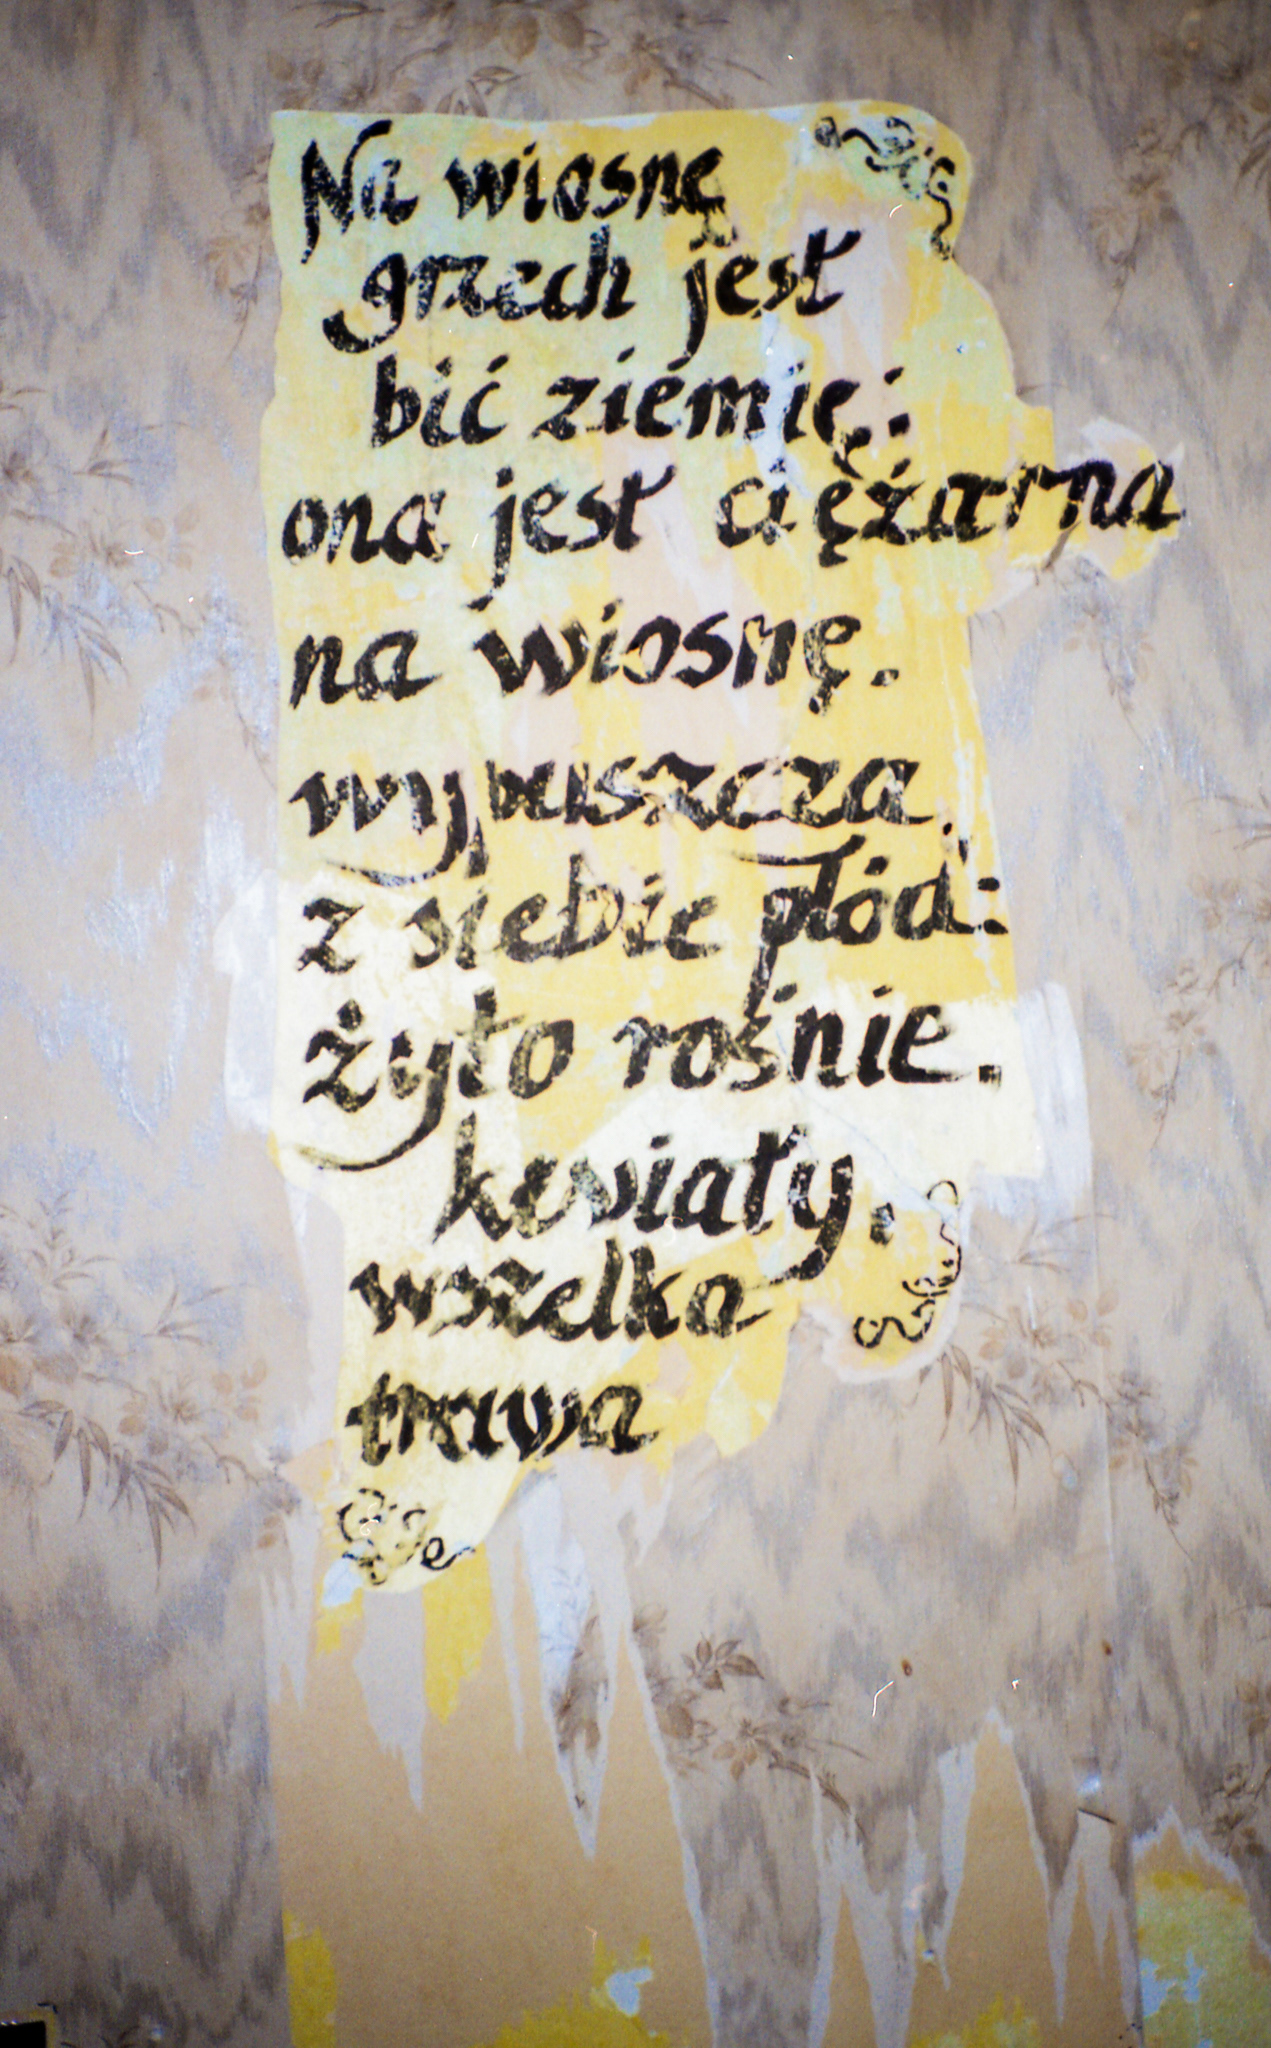 Na wiosnę
grzech jest
bić ziemię:
ona jest ciężarna
na wiosnę.
wypuszcza
z siebie płód:
żyto rośnie.
kwiaty.
wszelka
trawa